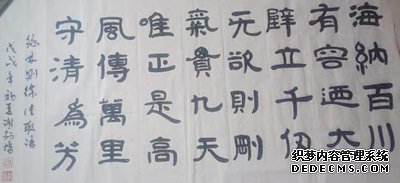 海納百川
有容迺大
壁立千仞
无欲則剛
氣貫九天
唯正是高
風傳萬里
守清為芳
林則徐佳聯語
戊戌年初夏
织梦内容管理系统
DEDECMS.COM